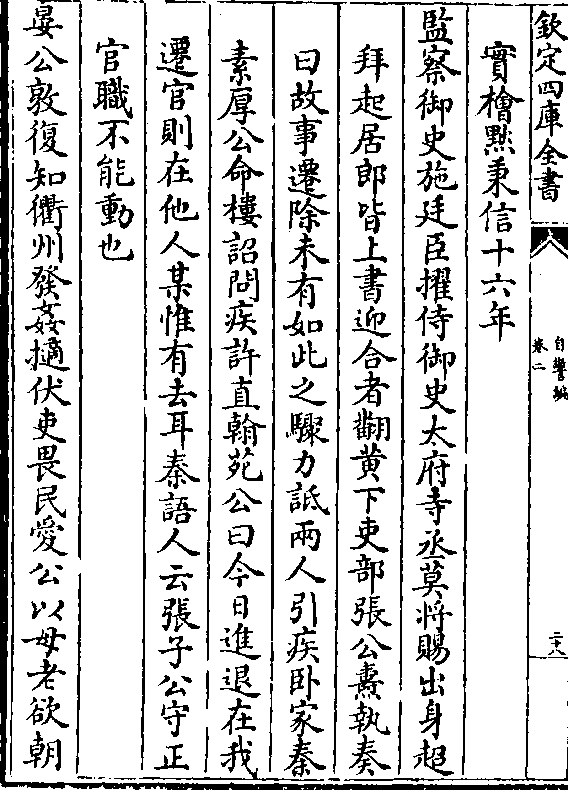 欽定四庫全書
自警編
卷二
二十八
實檜黙秉信十六年
監察御史施廷臣擢侍御史太府寺丞莫將賜出身超
拜起居郎皆上書迎合者翻黄下吏部張公燾執奏
曰故事遷除未有如此之驟力詆兩人引疾卧家秦
素厚公命樓詔問疾許直翰苑公曰今日進退在我
遷官則在他人某惟有去耳秦語人云張子公守正
官職不能動也
晏公敦復知衢州發姦擿伏吏畏民愛公以母老欲朝